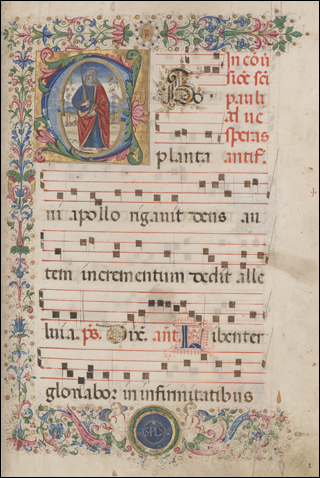 In cōu
siōe sci
pauli
ad ue
speras
antif.
Ego
planta
ui apollo rigauit deus au
tem incrementum dedit alle
luia. ps. Dix̄. ant. Libenter
gloriabor in infirmitatibus